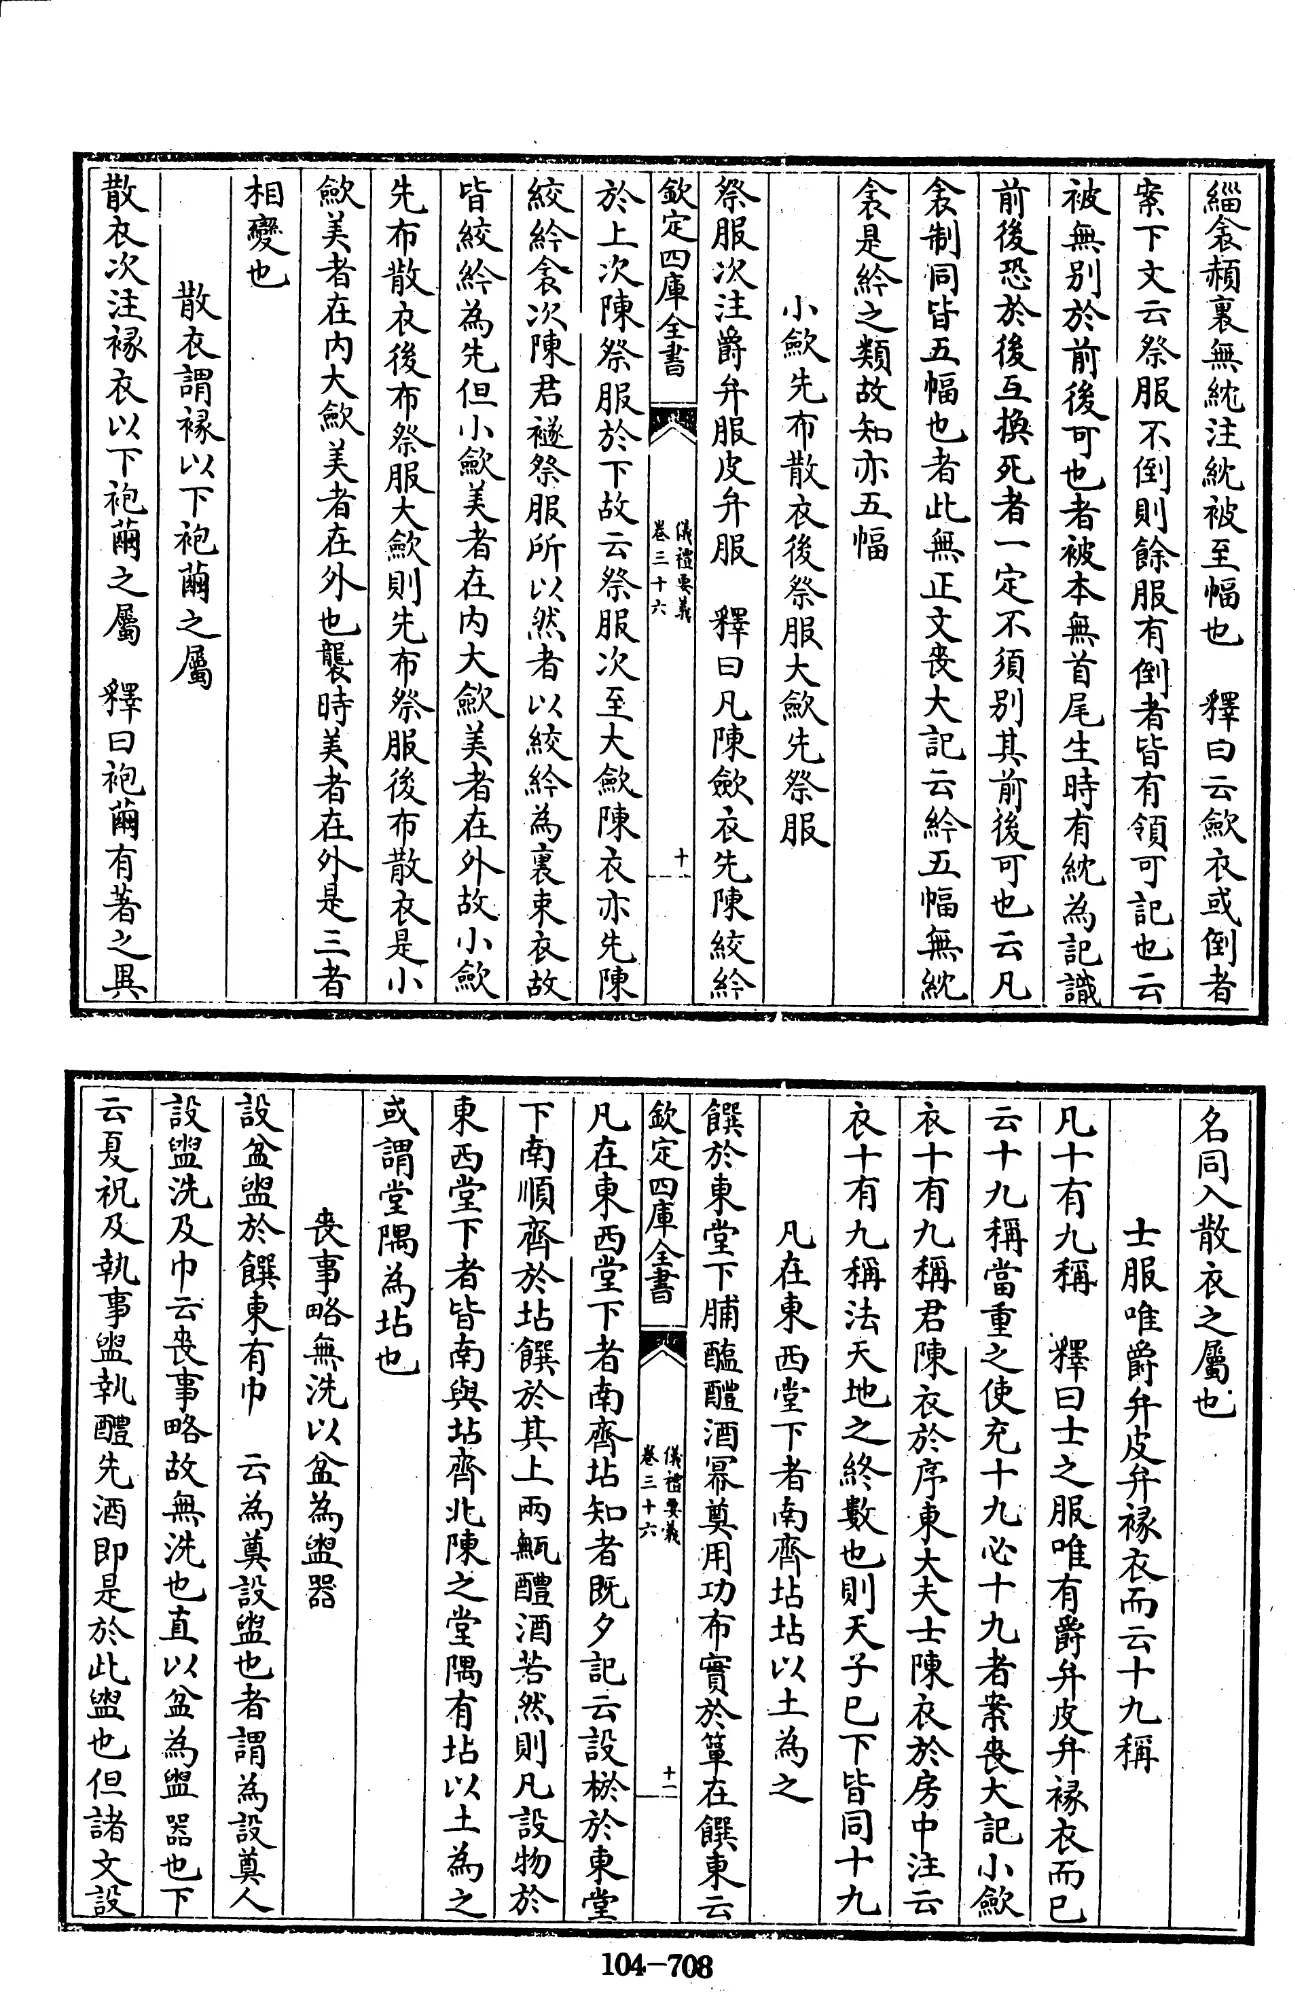 緇衾赬裏無紞注紞被至幅也　釋曰云斂衣或倒者
案下文云祭服不倒則餘服有倒者皆有領可記也云
被無别於前後可也者被本無首尾生時有紞為記識
前後恐於後互換死者一定不須别其前後可也云凡
衾制同皆五幅也者此無正文喪大記云紟五幅無紞
衾是紟之類故知亦五幅
小斂先布散衣後祭服大斂先祭服
祭服次注爵弁服皮弁服　釋曰凡陳斂衣先陳絞紟
欽定四庫全書
儀禮要義
卷三十六
十
於上次陳祭服於下故云祭服次至大斂陳衣亦先陳
絞紟衾次陳君襚祭服所以然者以絞紟為裏束衣故
皆絞紟為先但小斂美者在内大斂美者在外故小斂
先布散衣後布祭服大斂則先布祭服後布散衣是小
斂美者在内大斂美者在外也襲時美者在外是三者
相變也
散衣謂褖以下袍繭之屬
散衣次注褖衣以下袍繭之屬　釋曰袍繭有著之異
名同入散衣之屬也
士服唯爵弁皮弁褖衣而云十九稱
凡十有九稱　釋曰士之服唯有爵弁皮弁褖衣而已
云十九稱當重之使充十九必十九者案喪大記小斂
衣十有九稱君陳衣於序東大夫士陳衣於房中注云
衣十有九稱法天地之終數也則天子已下皆同十九
凡在東西堂下者南齊坫坫以土為之
饌於東堂下脯醢醴酒冪奠用功布實於簞在饌東云
欽定四庫全書
儀禮要義
卷三十六
十一
凡在東西堂下者南齊坫知者既夕記云設棜於東堂
下南順齊於坫饌於其上兩甒醴酒若然則凡設物於
東西堂下者皆南與坫齊北陳之堂隅有坫以土為之
或謂堂隅為坫也
喪事略無洗以盆為盥器
設盆盥於饌東有巾　云為奠設盥也者謂為設奠人
設盥洗及巾云喪事略故無洗也直以盆為盥器也下
云夏祝及執事盥執醴先酒即是於此盥也但諸文設
104-708